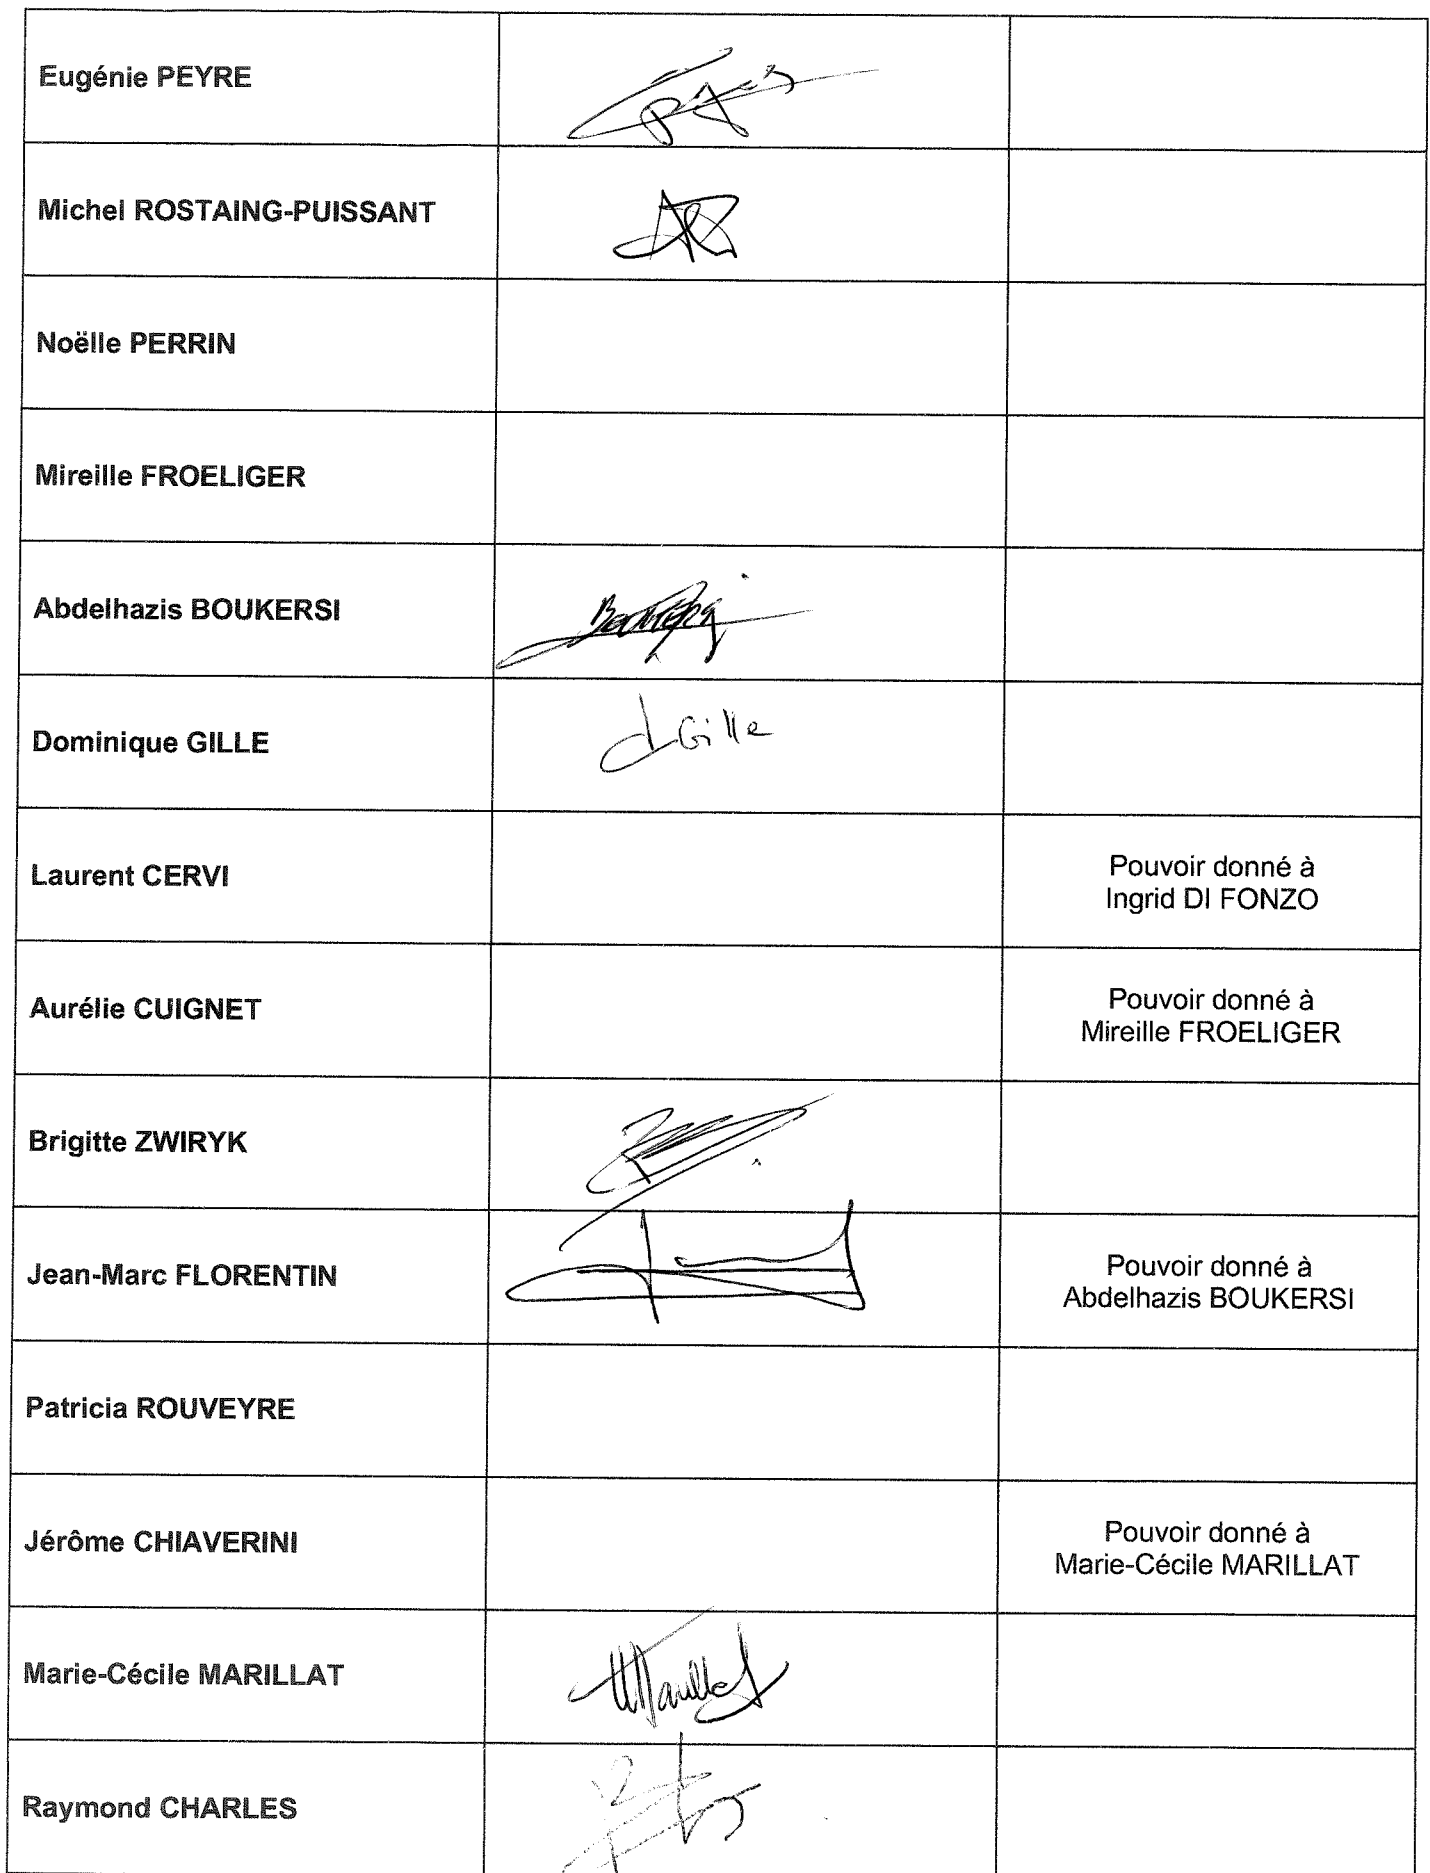 Eugénie PEYRE
Michel ROSTAING-PUISSANT
Noëlle PERRIN
Mireille FROELIGER
Abdelhazis BOUKERSI
Dominique GILLE
d Gille
Laurent CERVI
Pouvoir donné à
Ingrid DI FONZO
Aurélie CUIGNET
Pouvoir donné à
Mireille FROELIGER
Brigitte ZWIRYK
Jean-Marc FLORENTIN
Pouvoir donné à
Abdelhazis BOUKERSI
Patricia ROUVEYRE
Jérôme CHIAVERINI
Pouvoir donné à
Marie-Cécile MARILLAT
Marie-Cécile MARILLAT
Raymond CHARLES